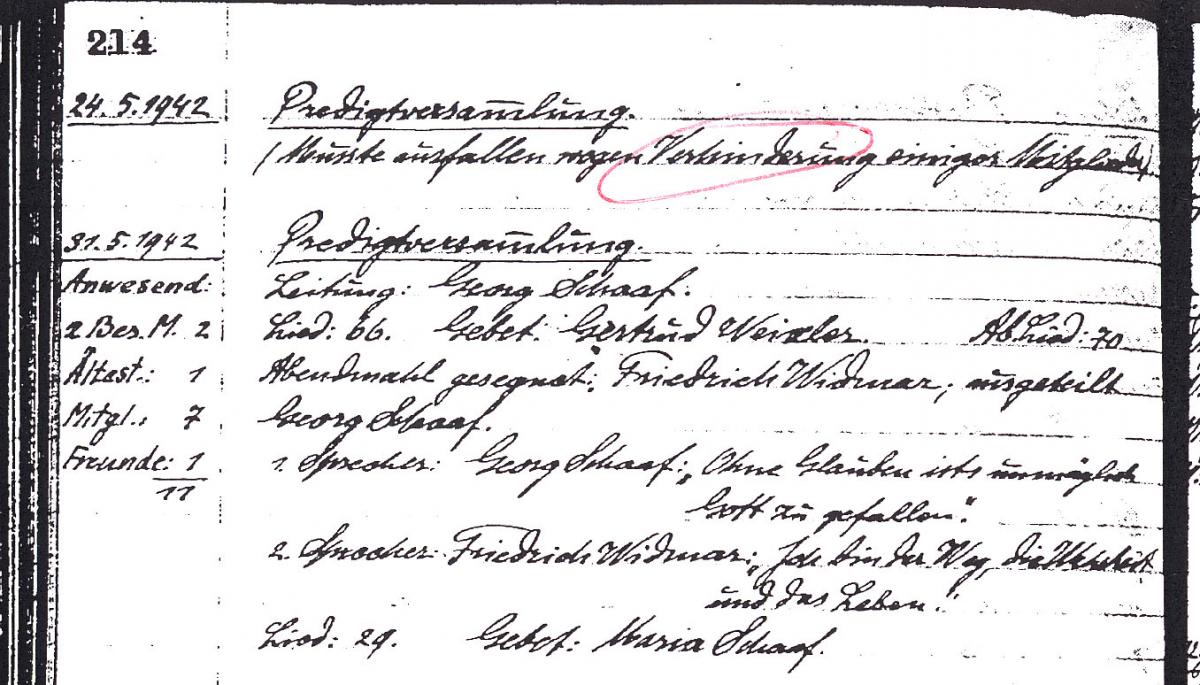 214
24.5.1942 Predigtversam̅lung.
(Musste ausfallen wegen Verhinderung einiger Mitglieder)
31.5.1942 Predigtversam̅lung.
Anwesend: Leitung: Georg Schaaf.
2 Bes. M. 2 Lied: 66. Gebet: Gertrud Weixler. Ab. Lied: 70
Ältest.: 1 Abendmahl gesegnet: Friedrich Widmar; ausgeteilt
Mitgl.: 7 Georg Schaaf.
Freunde: 1 1. Sprecher: Georg Schaaf: „Ohne Glauben ists unmöglich
11 Gott zu gefallen."
2. Sprecher: Friedrich Widmar: „Ich bin der Weg, die Wahrheit
und das Leben."
Lied: 29. Gebet: Maria Schaaf.